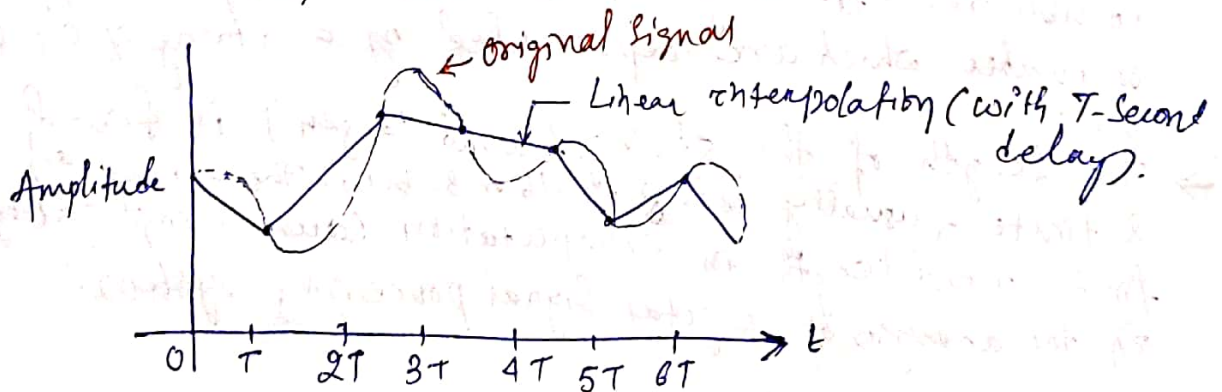 ← Original Signal
Linear interpolation (with T-Second
delay).
Amplitude
0 T 2T 3T 4T 5T 6T t